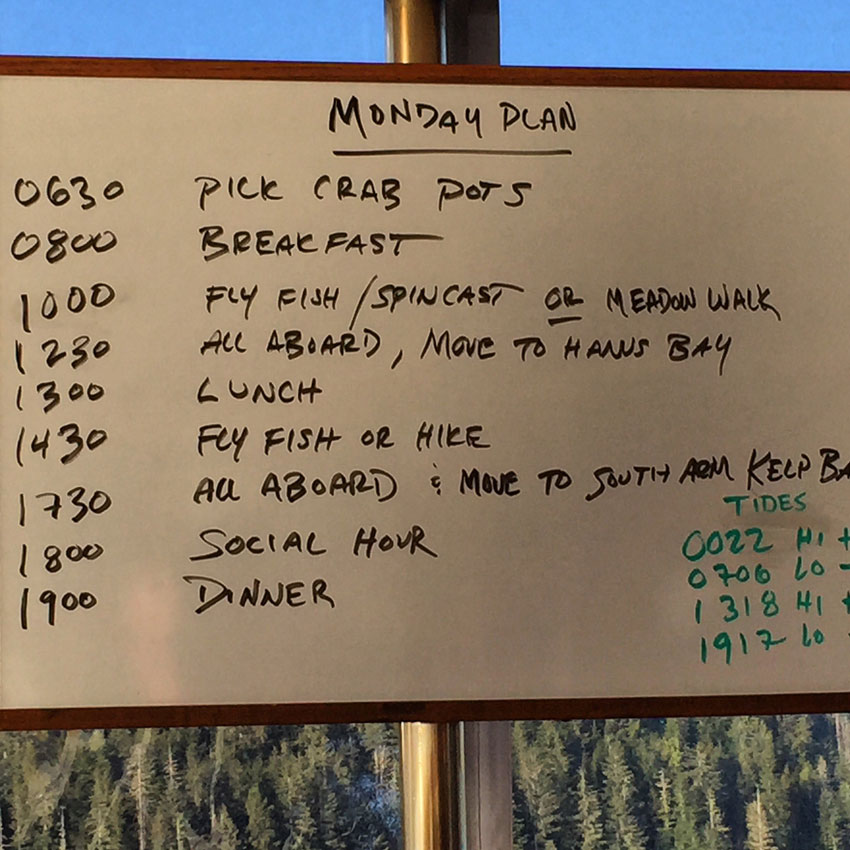 MONDAY PLAN
0630 PICK CRAB POTS
0800 BREAKFAST
1000 FLY FISH / SPINCAST OR MEADOW WALK
1230 ALL ABOARD, MOVE TO HANUS BAY
1300 LUNCH
1430 FLY FISH OR HIKE
1730 ALL ABOARD & MOVE TO SOUTH ARM KELP BA
1800 SOCIAL HOUR
1900 DINNER
TIDES
0022 HI +
0706 LO -
1318 HI +
1917 LO